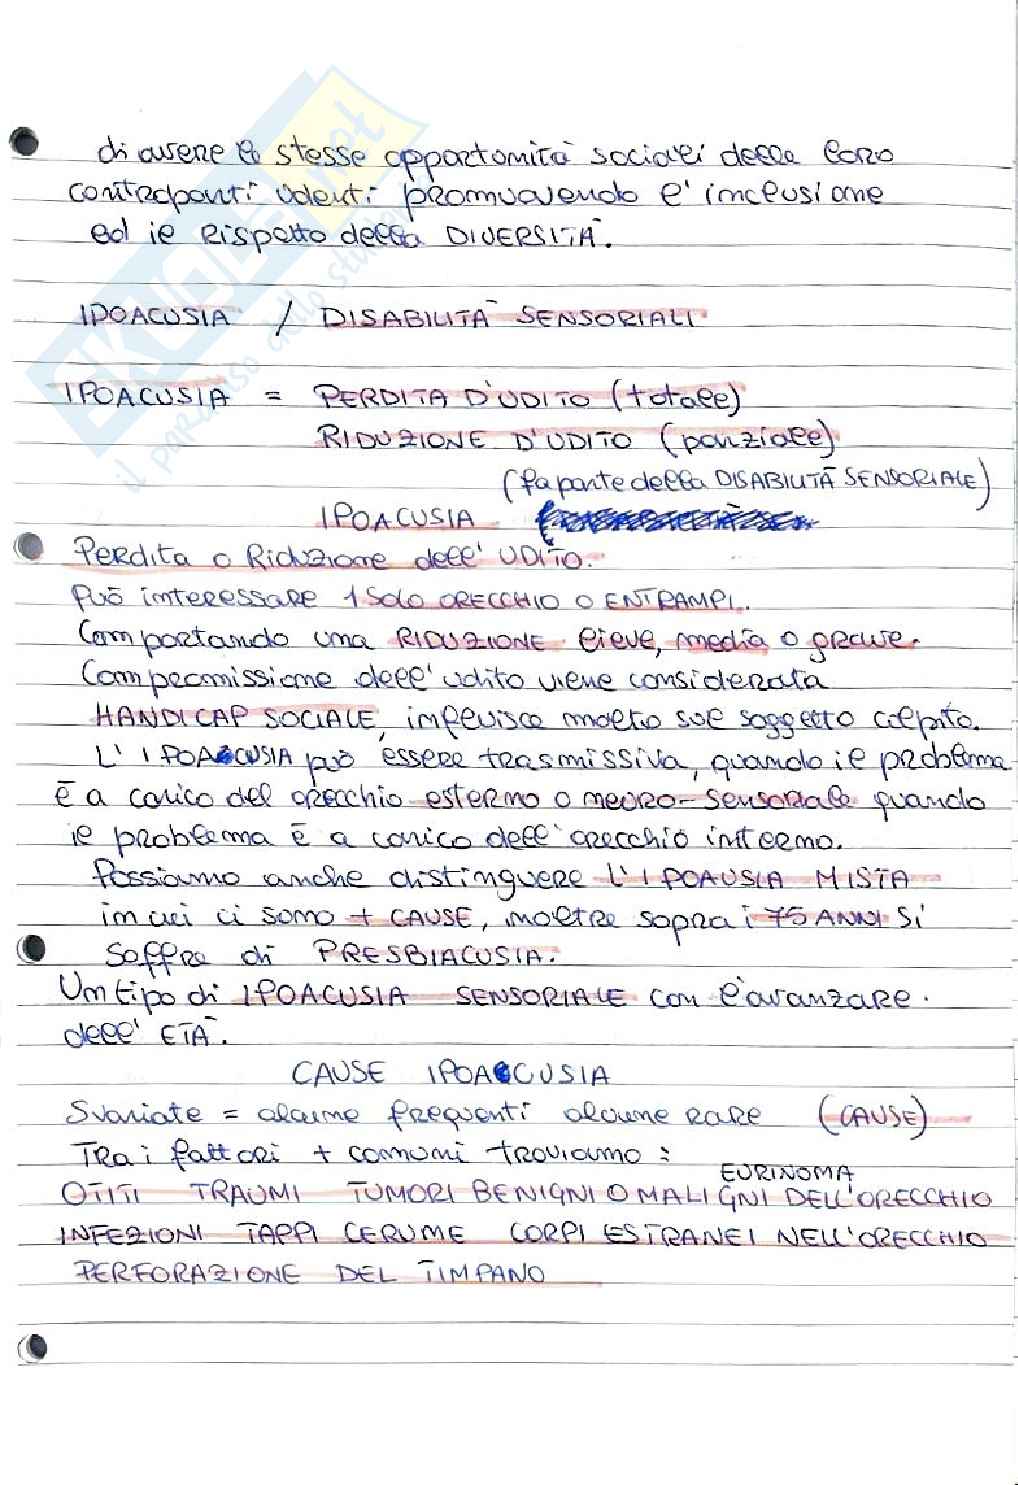 di avere le stesse opportunità sociali delle loro
controparti udenti promuovendo l'inclusione
ed il RISPETTO della DIVERSITÀ.
IPOACUSIA / DISABILITÀ SENSORIALI
IPOACUSIA = PERDITA D'UDITO (totale)
RIDUZIONE D'UDITO (parziale)
(fa parte della DISABILITÀ SENSORIALE)
IPOACUSIA
Perdita o Riduzione dell'UDITO.
Può interessare 1 Solo ORECCHIO O ENTRAMPI.
Comportando una RIDUZIONE lieve, media o grave.
Compromissione dell'udito viene considerata
HANDICAP SOCIALE, influisce molto sul soggetto colpito.
L'IPOACUSIA può essere trasmissiva, quando il problema
è a carico del orecchio esterno o neuro-sensoriale quando
il problema è a carico dell'orecchio interno.
Possiamo anche distinguere L'IPOAUSIA MISTA
in cui ci sono + CAUSE, inoltre sopra i 75 ANNI Si
soffre di PRESBIACUSIA.
Un tipo di IPOACUSIA SENSORIALE con l'avanzare.
dell'ETÀ.
CAUSE IPOACUSIA
Svariate = alcune frequenti alcune rare (CAUSE)
Tra i fattori + comuni troviamo:
EURINOMA
OTITI TRAUMI TUMORI BENIGNI O MALIGNI DELL'ORECCHIO
INFEZIONI TAPPI CERUME CORPI ESTRANEI NELL'ORECCHIO
PERFORAZIONE DEL TIMPANO
SKUOLA.net
il paradiso dello studente